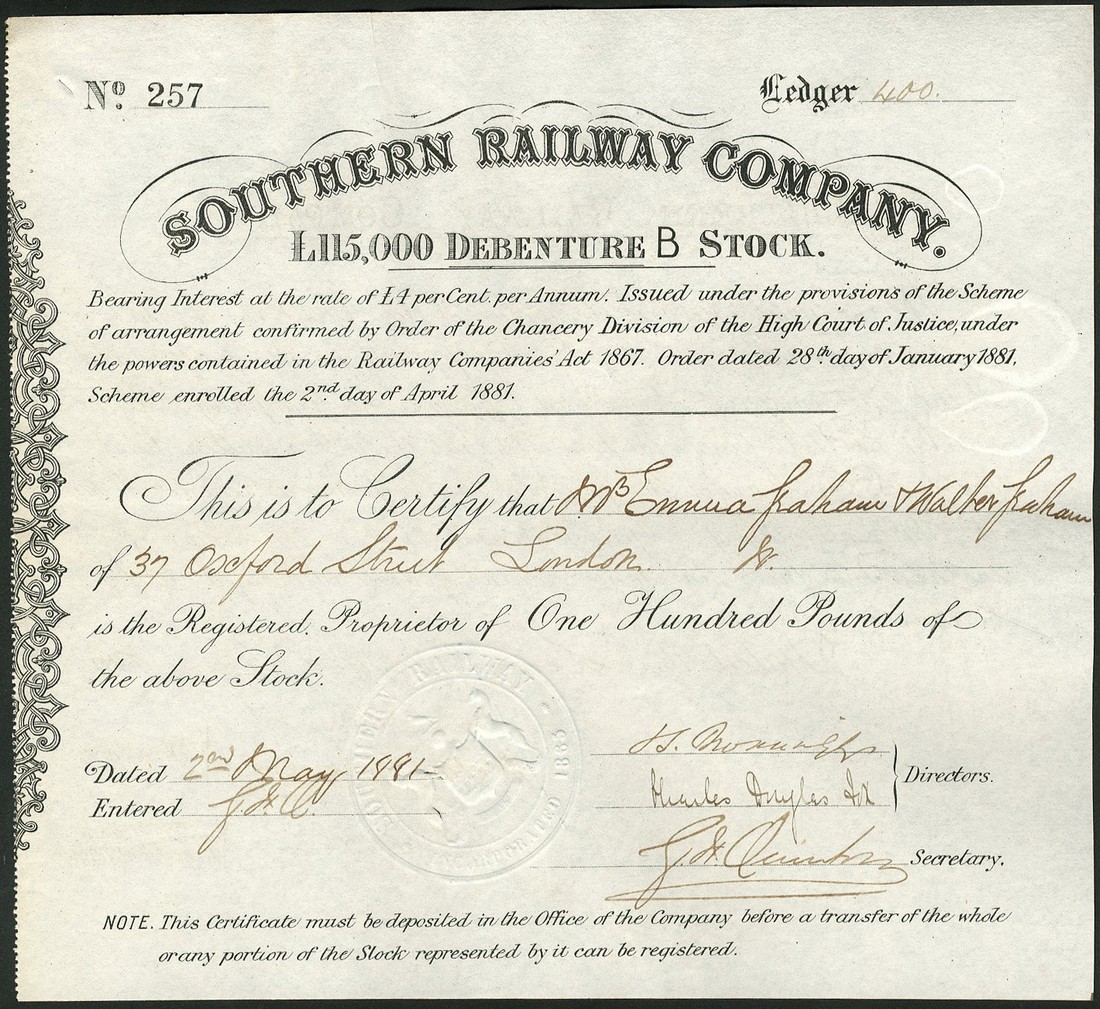 No. 257
Ledger 400.
SOUTHERN RAILWAY COMPANY.
£115,000 DEBENTURE B STOCK.
Bearing Interest at the rate of £4 per Cent. per Annum. Issued under the provisions of the Scheme
of arrangement confirmed by Order of the Chancery Division of the High Court of Justice, under
the powers contained in the Railway Companies' Act 1867. Order dated 28th day of January 1881,
Scheme enrolled the 2nd day of April 1881.
This is to Certify that Emma Graham & Walter Graham
of 37 Oxford Street London. W.
is the Registered Proprietor of One Hundred Pounds of
the above Stock.
SOUTHERN RAILWAY
INCORPORATED 1865
Dated 2nd May 1881
Directors.
Entered
Charles Douglas Fox
G. W. Secretary.
NOTE. This Certificate must be deposited in the Office of the Company before a transfer of the whole
or any portion of the Stock represented by it can be registered.